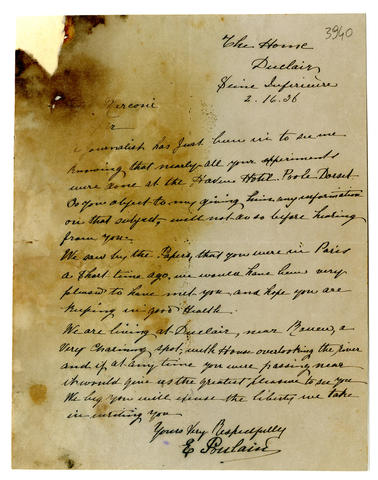 3940
The Home
Duclair
Seine Inferieure
2. 16. 36
Marconi
Journalist has just been in to see me
knowing that nearly all your experiments
were done at the Haven Hotel Poole Dorset
Do you object to my giving him any information
on that subject, will not do so before hearing
from you.
We saw by the Papers, that you were in Paris
a short time ago, we would have been very
pleased to have met you and hope you are
keeping in good Health.
We are living at Duclair, near Rouen, a
Very Charming spot, with House overlooking the river
and if at any time you were passing near
it would give us the greatest pleasure to see you
We beg you will excuse the liberty we take
in writing you
Yours Very Respectfully
E Poulain